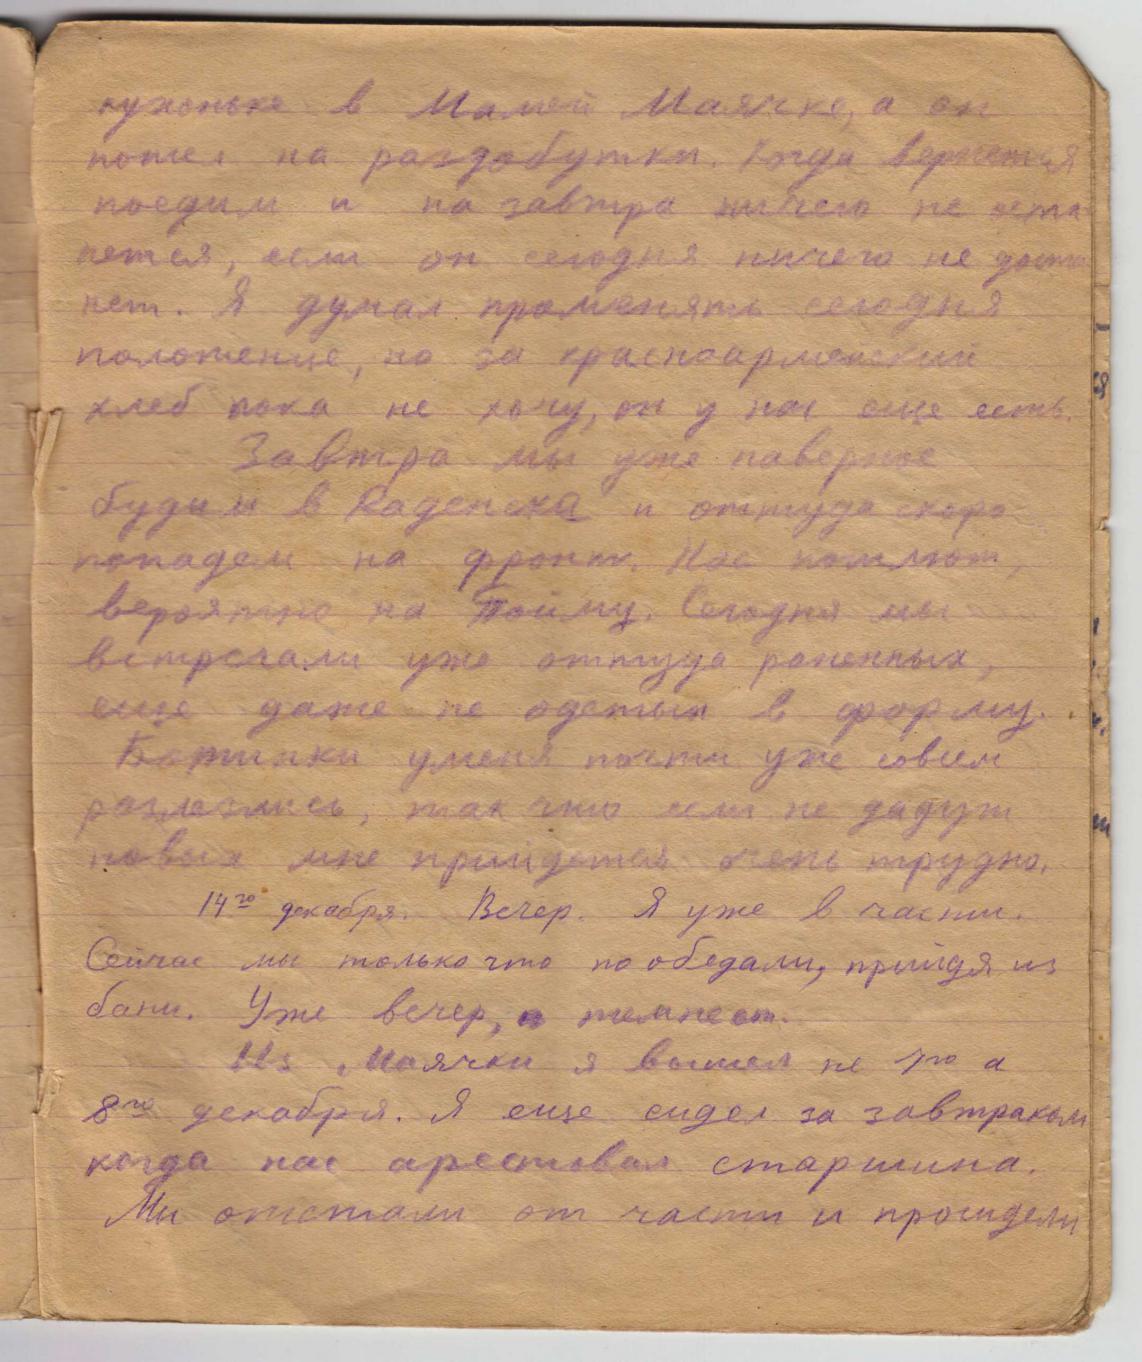 кухоньке в Малой Маячке, а он
пошел на раздобутки. Когда вернется
поедим и на завтра ничего не оста
нется, если он сегодня ничего не доста
нет. Я думал променять сегодня
полотенце, но за красноармейский
хлеб пока не хочу, он у нас еще есть.
Завтра мы уже наверное
будим в Раденска и оттуда скоро
попадем на фронт. Нас пошлют,
вероятно на Пойму. Сегодня мы
встречали уже оттуда раненных,
еще даже не одетых в форму.
Ботинки уменя почти уже совсем
разлезлись, так что если не дадут
новых мне прийдется очень трудно.
14го декабря. Вечер. Я уже в части.
Сейчас мы только что пообедали, прийдя из
бани. Уже вечер, темнеет.
Из Маячки я вышел не 7го а
8го декабря. Я еще сидел за завтраком
когда нас арестовал старшина.
Ми отстали от части и просидели